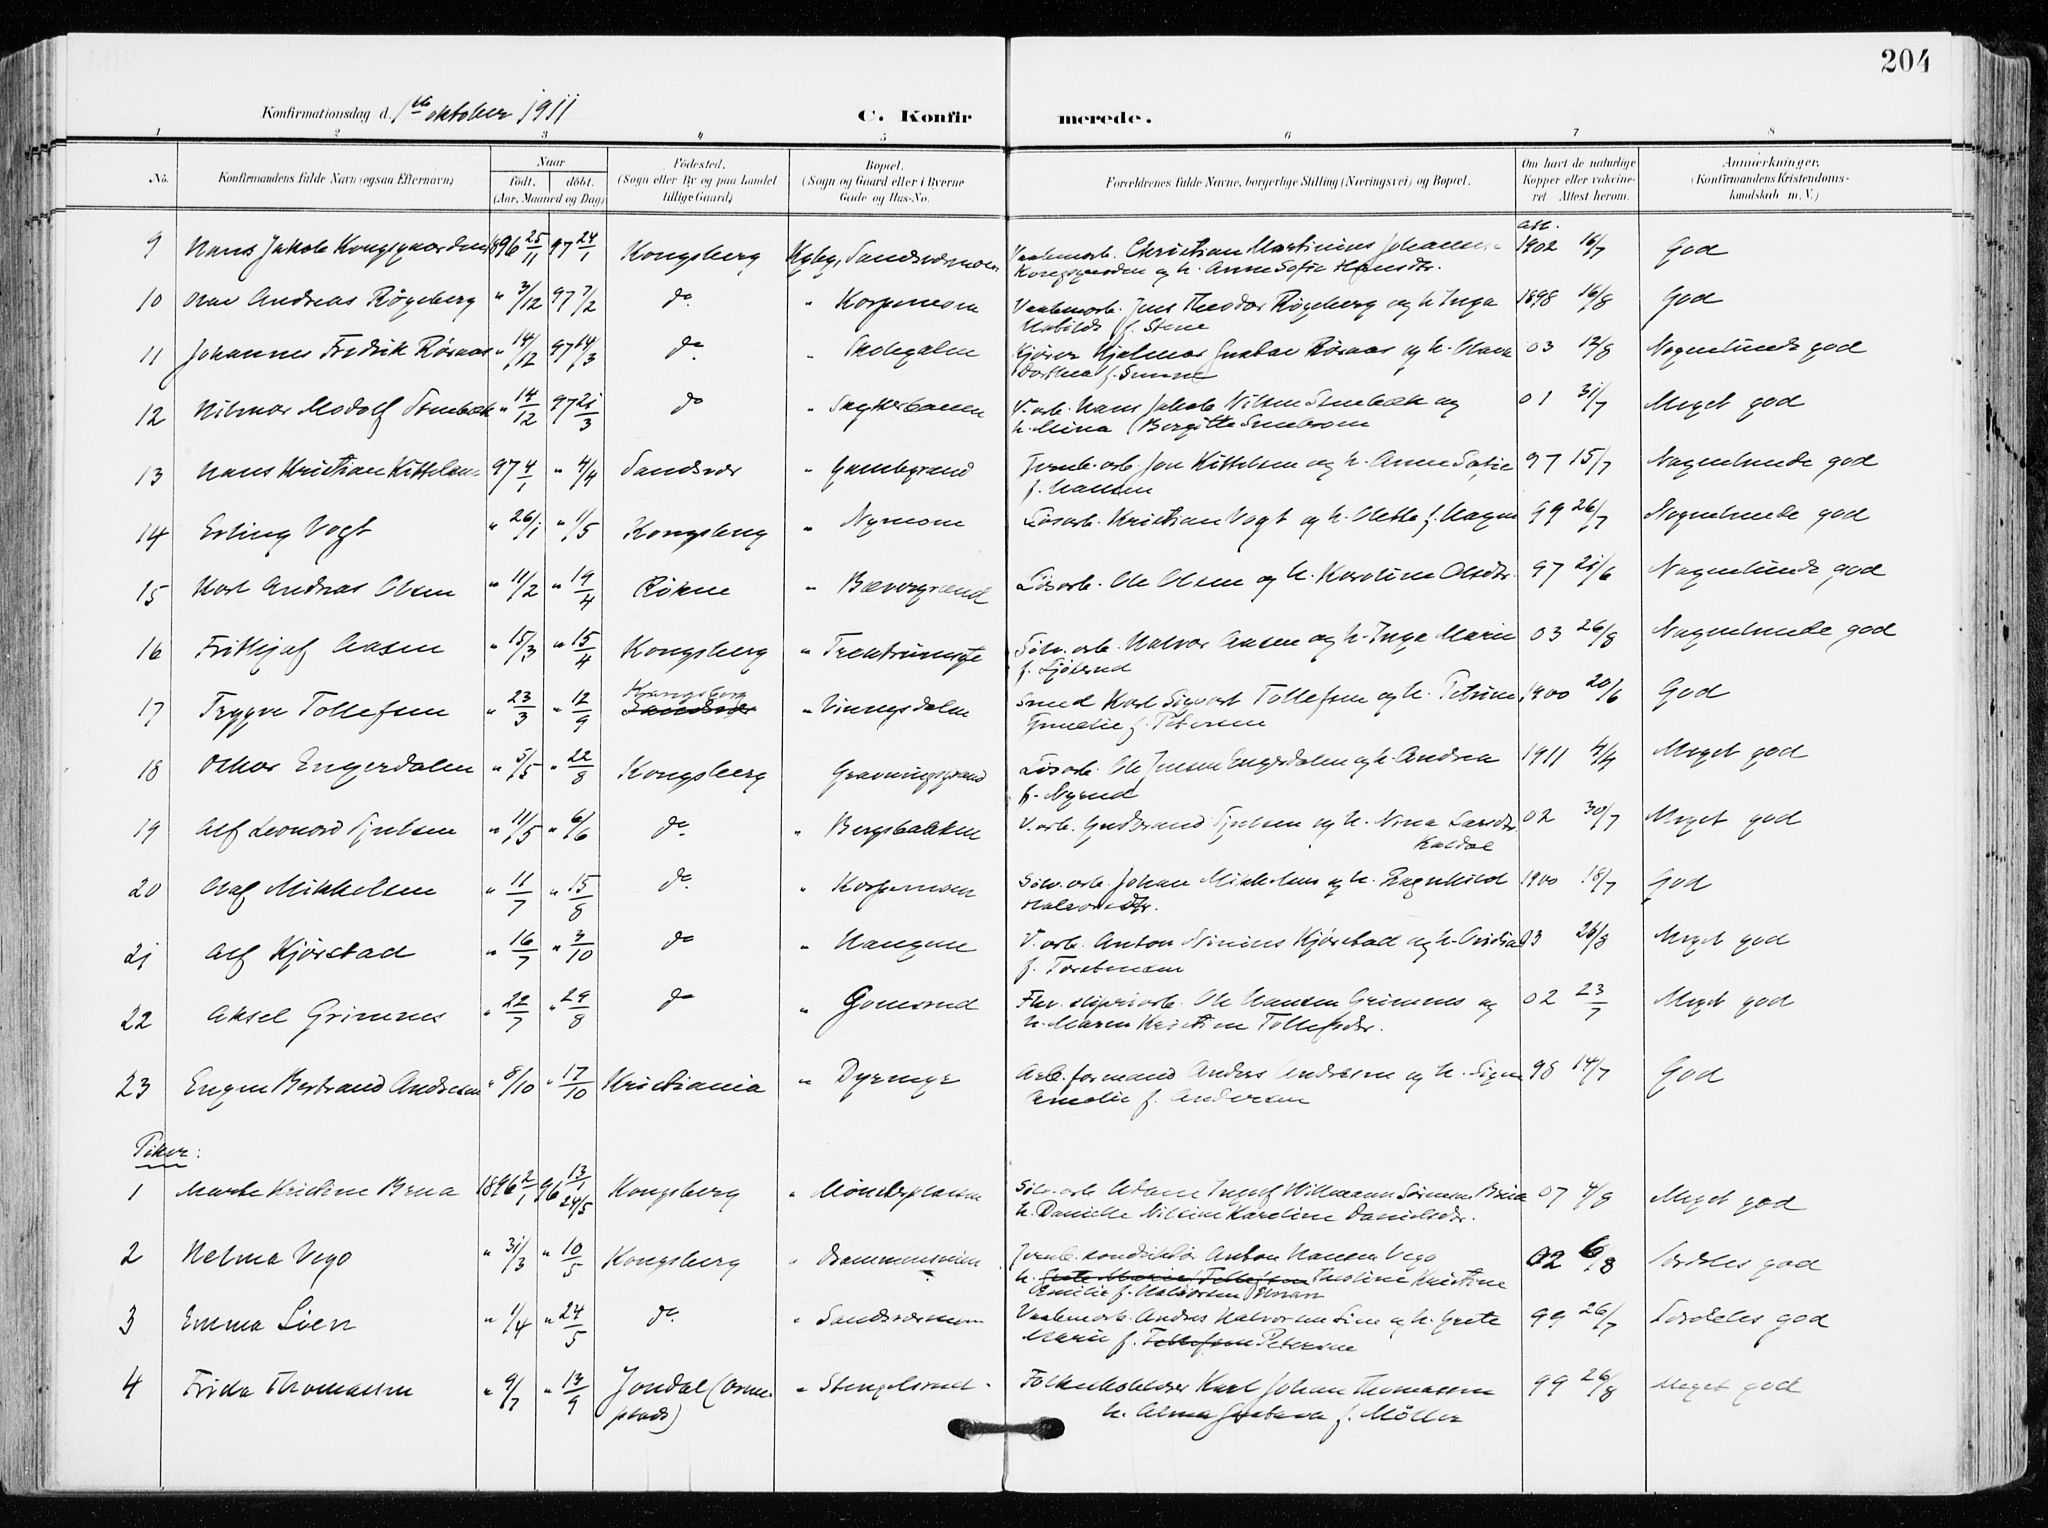 204
Konfirmationsdag d. 1ste oktober 1911 C. Konfirmerede.
1 2 3 4 5 6 7 8
No. Konfirmandens fulde Navn (ogsaa Efternavn) Naar født. døbt. (Aar, Maaned og Dag) Fødested. (Sogn eller By og paa Landet tillige Gaard) Bopæl. (Sogn og Gaard eller i Byerne Gade og Hus-No. Forældrenes fulde Navne, borgerlige Stilling (Næringsvei) og Bopæl. Om havt de naturlige Kopper eller vakcineret. Attest herom. Anmærkninger. (Konfirmandens Kristendomskundskab m. V.)
9 Hans Jakob Kongsgaarden 1896 25/11 97 24/1 Kongsberg Kgbg, Sandsværmoen Vaabenarb. Christian Martinius Johannes att. 1902 16/7 God
Kongsgaarden og h. Anne Sofie Hansdtr.
10 Andreas Røgeberg " 3/12 97 7/2 do " Korpemoen Vaabenarb. Jens Theodor Røgeberg og h. Inga 1898 16/8 God
Mabilde f. Stene
11 Johannes Fredrik Røraas " 14/12 97 14/3 do " Skolegaten Kjører Hjalmar Gustav Røraas og h. Olava 03 12/8 Nogenlunde god
Dorthea f.
12 Hilmar Modolf Stenbæk " 14/12 97 21/3 do " V. arb. Hans Jakob Nilsen Stenbæk og 01 31/7 Meget god
h. Mina Bergitte
13 Hans Kristian Kittelsen 97 4/1 " 4/4 Sandsvær " Gambegrænd Jernb. arb. Jon Kittelsen og h. Anne Sofie 97 15/7 Nogenlunde god
f. Hansen
14 Erling Vogt " 26/1 " 1/5 Kongsberg " Nymoen Løsarb. Kristian Vogt og h. Olette f. Hagen 99 26/7 Nogenlunde god
15 Karl Andreas Olsen " 11/2 " 19/4 Røken " Bævergrænd Løsarb. Ole Olsen og h. Karoline Olsdtr. 97 21/6 Nogenlunde god
16 Frithjof Aasen " 15/3 " 15/4 Kongsberg " Sølv. arb. Halvor Aasen og h. Inga Marie 03 26/8 Nogenlunde god
f. Sjøterud
17 Trygve Tollefsen " 23/3 " 12/9 Kongsberg Sandsvær " Vinnesdalen Smed Karl Sigvart Tollefsen og h. Petrine 1900 20/6 God
f. Petersen
18 Oskar Engerdalen " 5/5 " 22/8 Kongsberg Gravningsgrænd Løsarb. Ole Jensen Engerdalen og h. Andrea 1911 4/4 Meget god
f. Nyrud
19 Alf Leonard Tjulsen " 11/5 " 6/6 do " Bergsbakken V. arb. Gudbrand Tjulsen og h. Nina Larsdtr. 02 30/7 Meget god
Kaldal
20 Olaf Mikkelsen " 11/7 " 15/8 do " Korpemoen Sølv. arb. Johan Mikkelsen og h. Ragnhild 1900 18/7 God
Halvorsdtr.
21 Alf Kjørstad " 16/7 " 3/10 do " Haugen V. arb. Anton Kjørstad og h. 03 26/8 Meget god
f. Torstensen
22 Aksel Grimnes " 22/7 " 29/8 do " Gomsrud Fhv. sliperiarb. Ole Hansen Grimnes og 02 23/7 Meget god
h. Maren Kristine Tollefsdtr.
23 Eugen Bertrand Andresen " 8/10 " 17/10 Kristiania " Dyrmyr Arb. formand Anders Andresen og h. Signe 98 14/7 God
Amalie f. Andersen
Piker:
1 Marte Kristine Brua 1896 2/1 96 13/1 24/5 Kongsberg " Møntepladsen Sølv. arb. Adam Ingolf Willmann Sørensen Brua 07 4/8 Meget god
h. Danielle Nilsine Karoline Danielsdtr.
2 Helma Vego " 31/3 " 10/5 Kongsberg " Drammensveien Jernb. konduktør Anton Hansen Vego 02 6/8 Særdeles god
h. Grete Marie Tollefsen Tholine Kristine
Amilie f. Halvorsen
3 Emma Lien " 1/4 " 24/5 do " Sandsværmoen Vaabenarb. Anders Halvorsen Lien og h. Grete 99 26/7 Særdeles god
Marie f. Tollefsen Petersen
4 Frida Thomassen " 9/7 " 13/9 Jondal (Orme- " Stengelsrud Folkeskolelærer Karl Johan Thomassen 99 26/8 Meget god
plads) h. Alma Gustava f. Møller